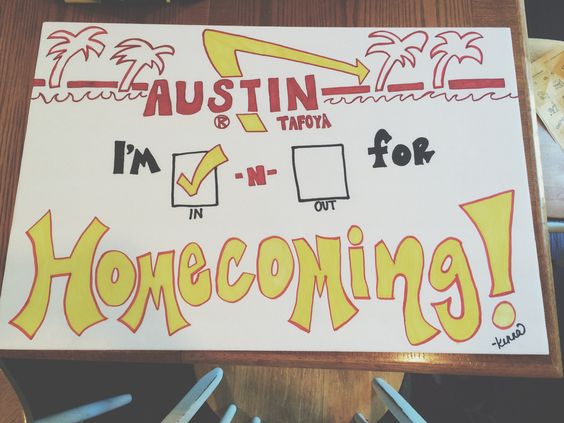 AUSTIN
® TAFOYA
I'M ✓ -N- for
IN OUT
Homecoming!
-Kenna